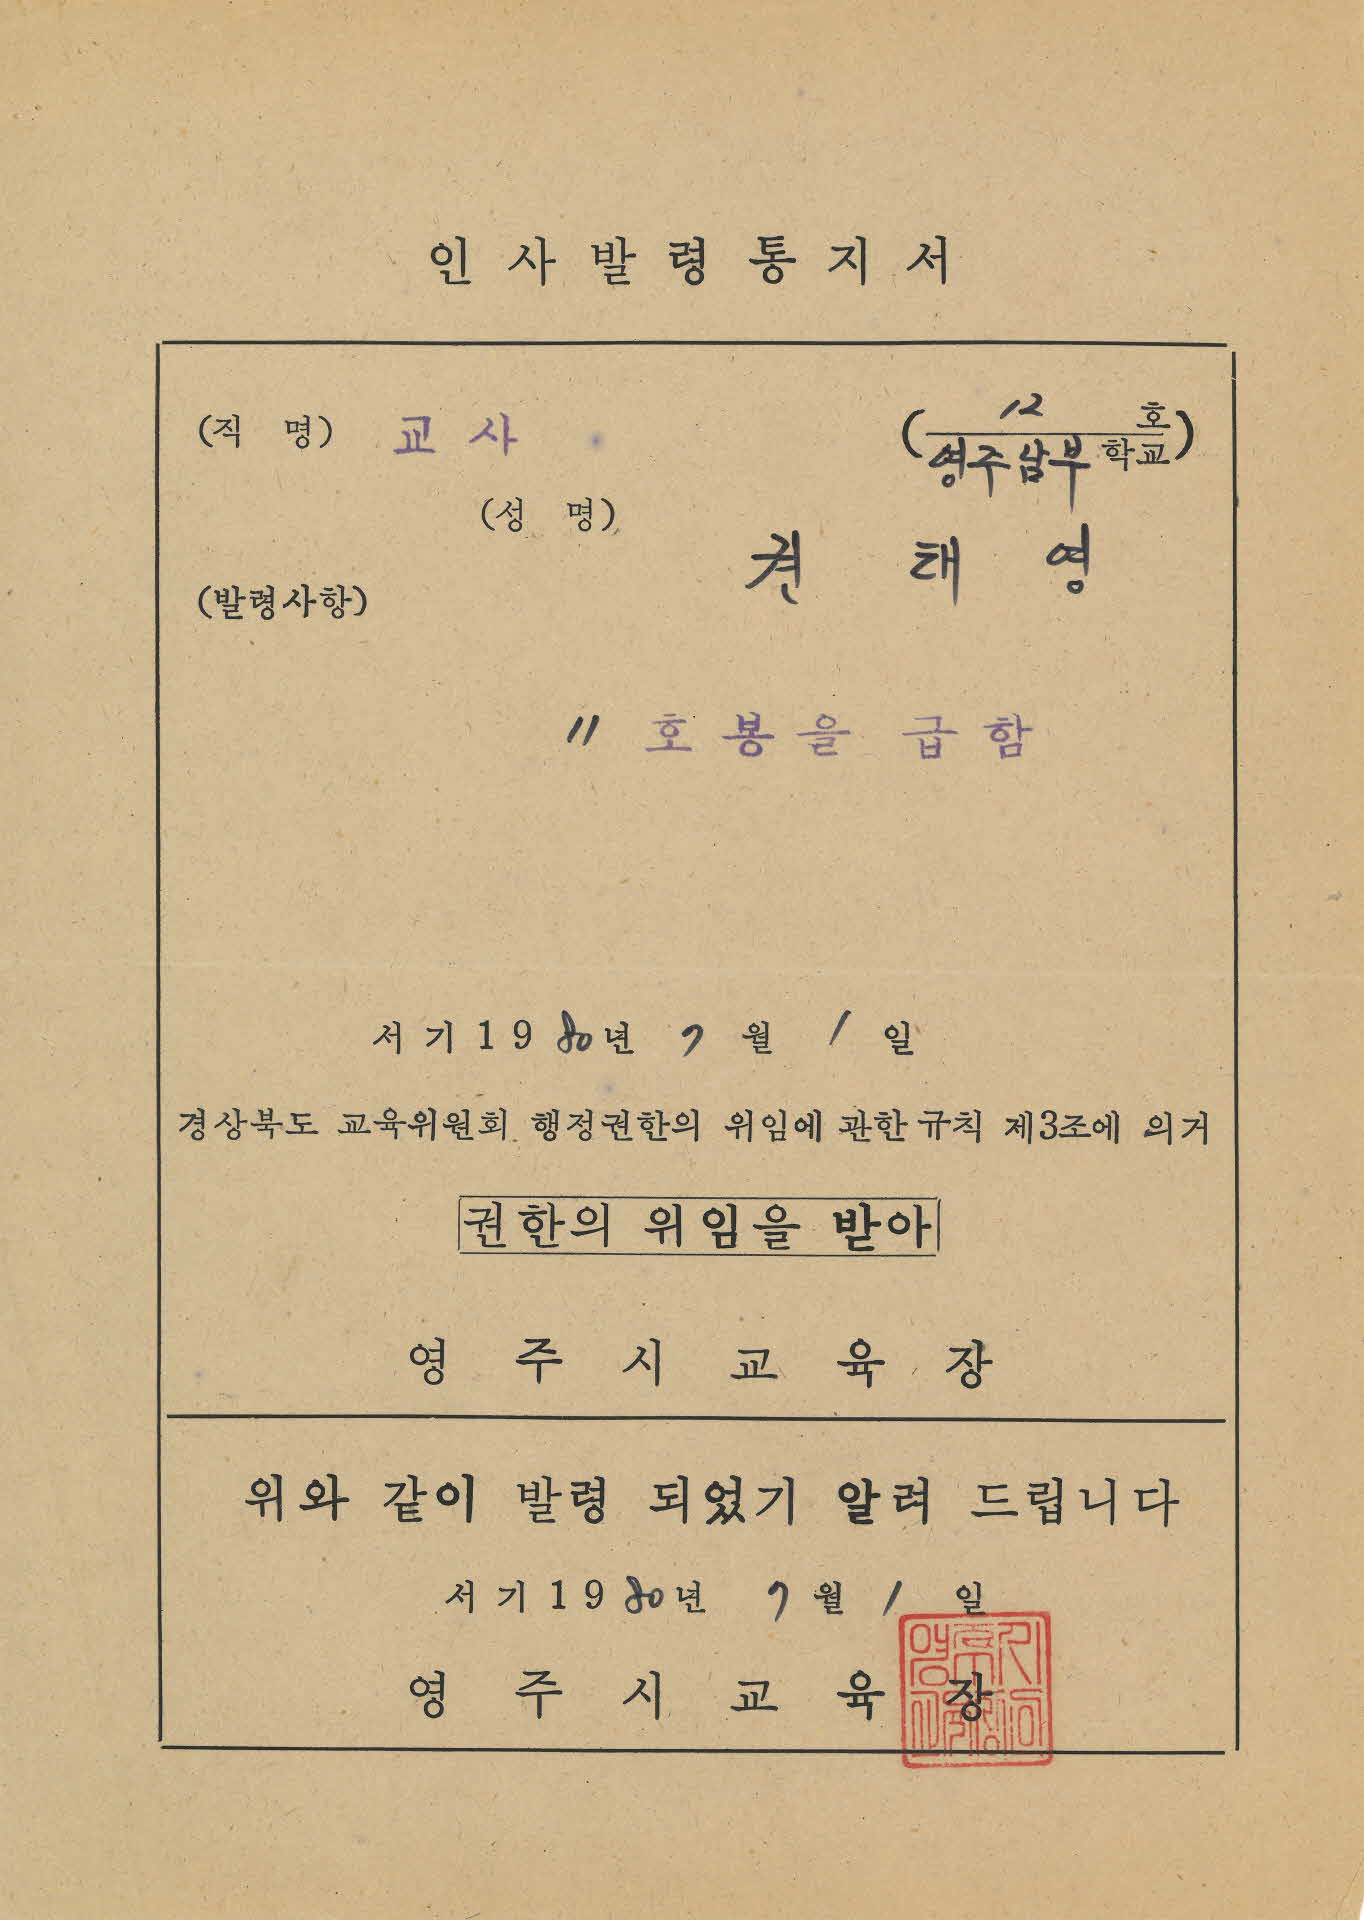 인사발령통지서
(직 명) 교사
(12 호
영주남부 학교)
(성 명) 권 태 영
(발령사항)
11 호봉을 급함
서기 1980년 7월 1일
경상북도 교육위원회 행정권한의 위임에 관한 규칙 제3조에 의거
권한의 위임을 받아
영 주 시 교 육 장
위와 같이 발령 되었기 알려 드립니다
서기 1980년 7월 1일
영 주 시 교 육 장